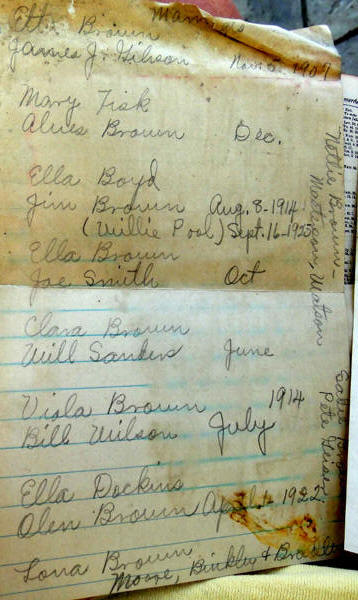 Marriages
Etta Brown
James J. Gibson Nov. 5, 1909
Mary Fisk
Alvis Brown Dec.
Ella Boyd
Jim Brown Aug. 8-1914
(Willie Pool) Sept. 16-192
Ella Brown
Joe Smith Oct
Clara Brown
Will Sanders June
Viola Brown 1914
Bill Wilson July
Ella Dockins
Olen Brown April 1922
Lona Brown
Moore, Binkley &
Nettie Brown-
Watson
Pete